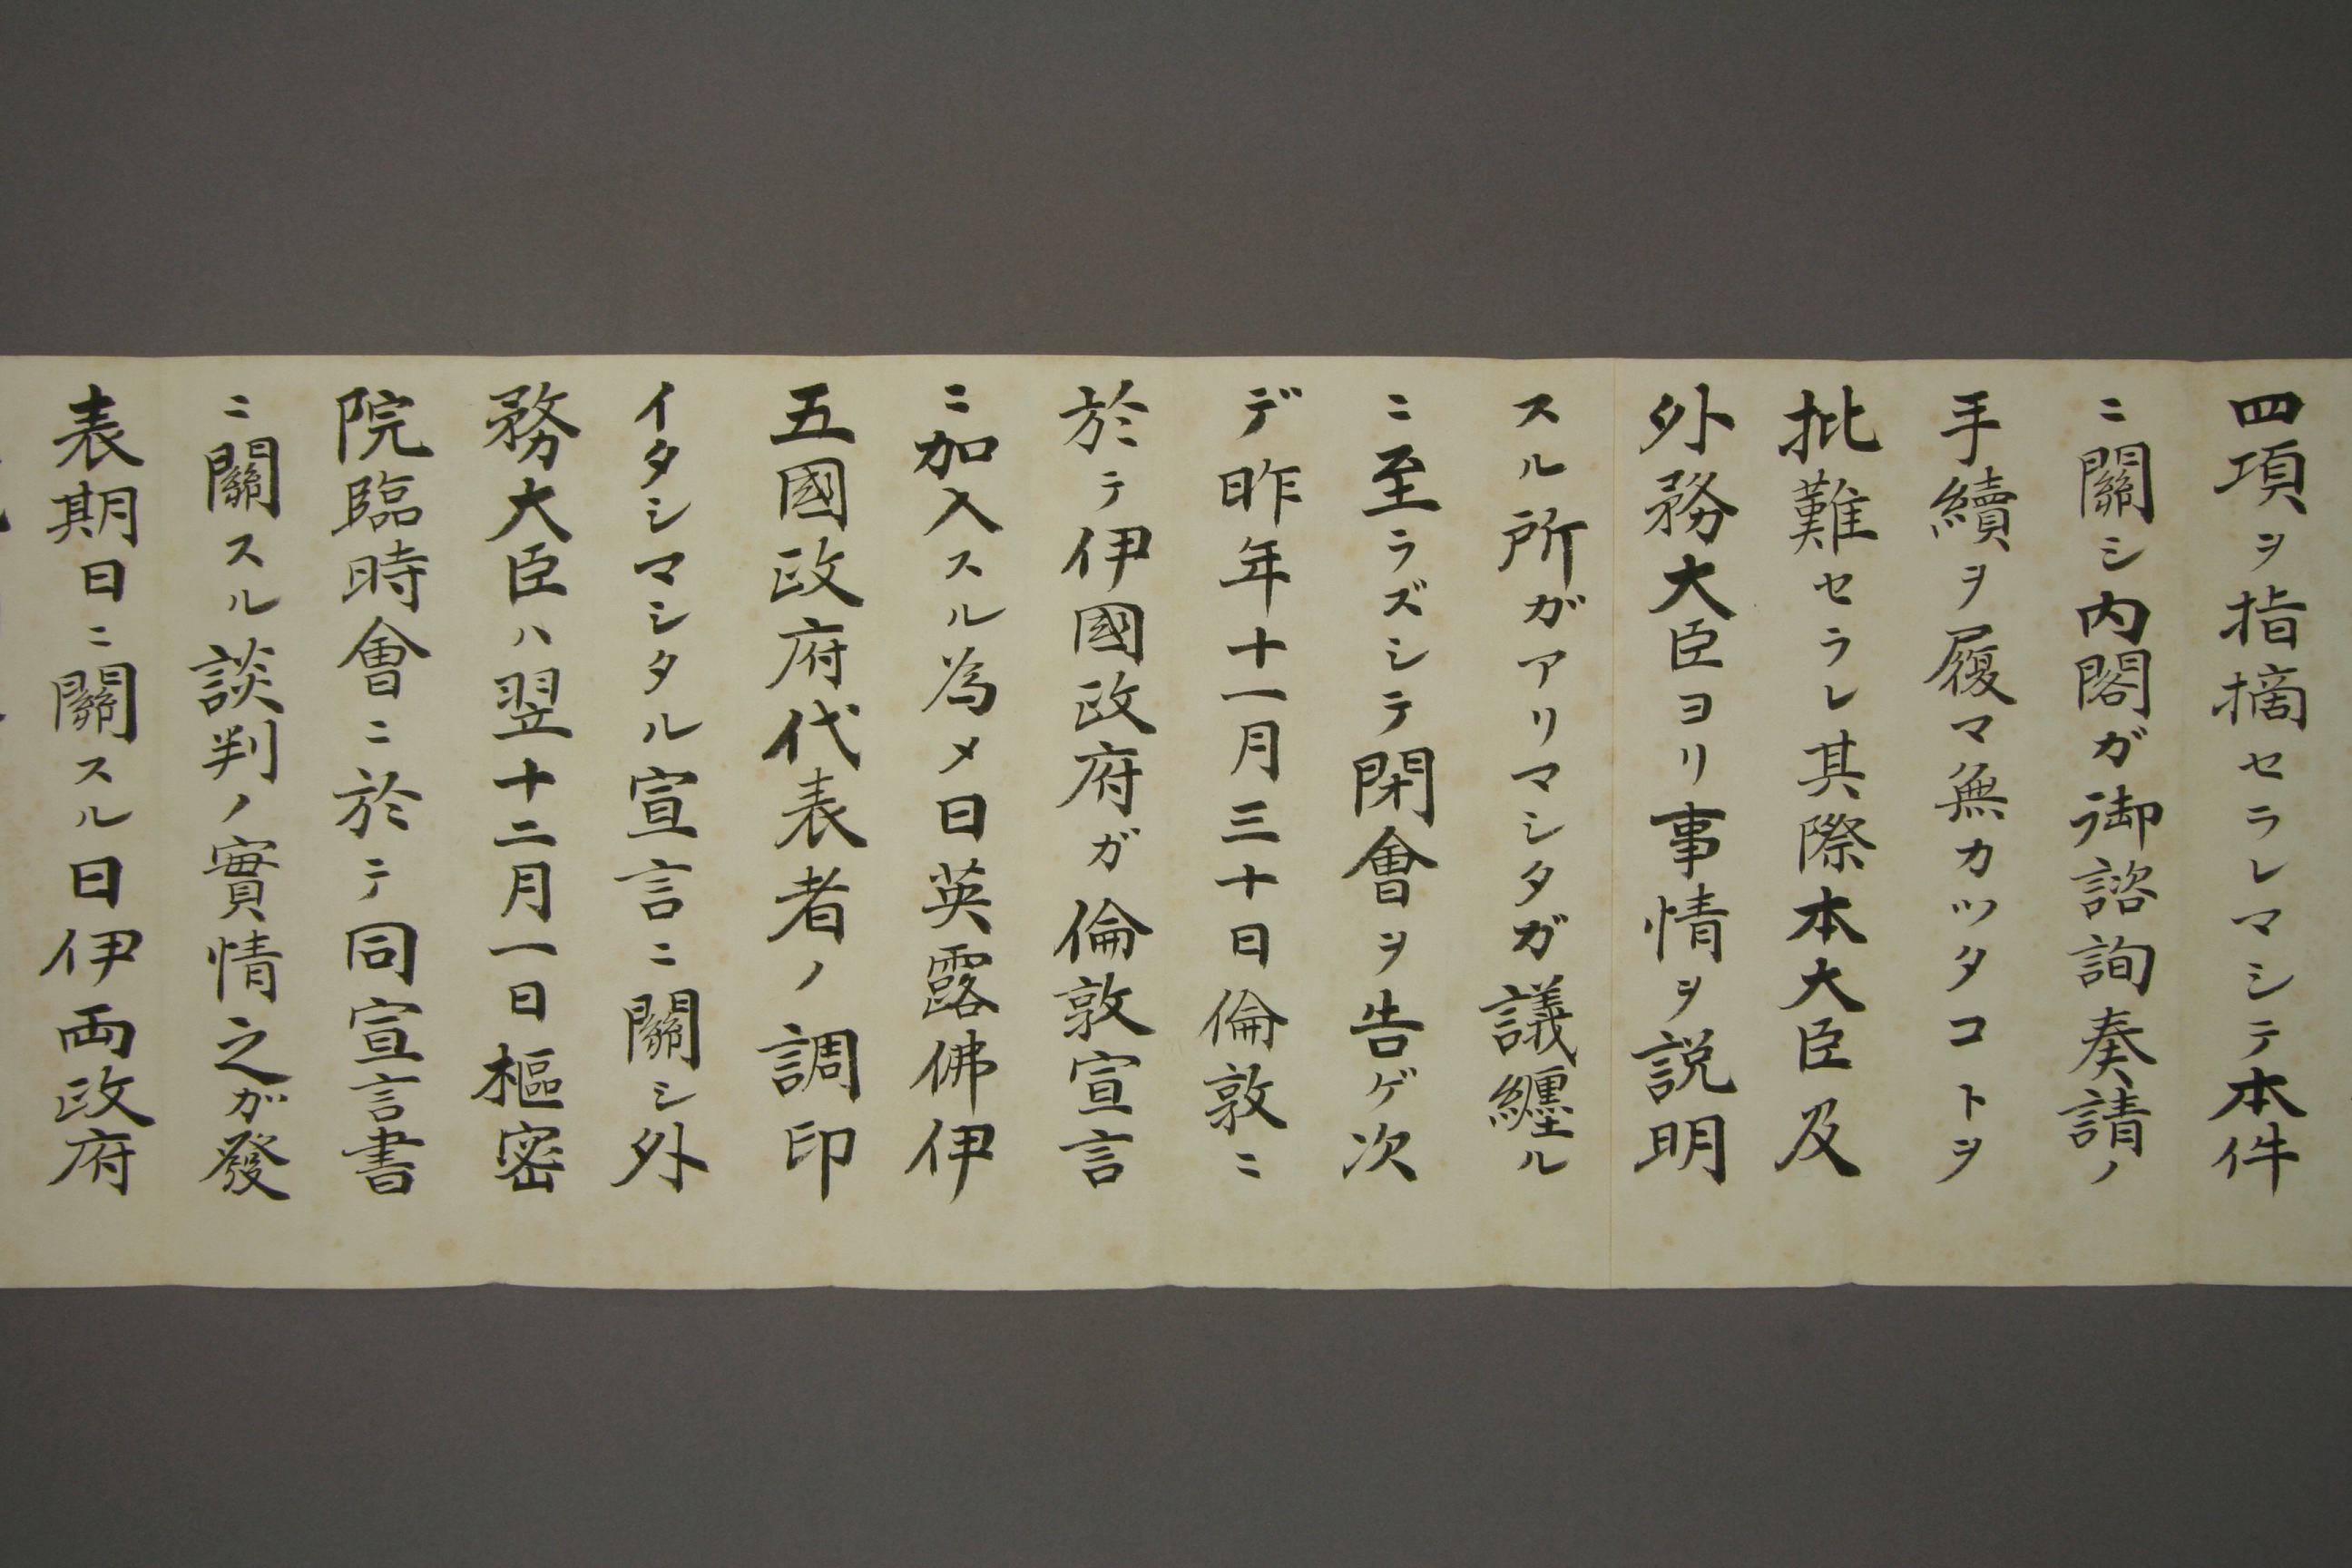 四項ヲ指摘セラレマシテ本件
ニ關シ内閣ガ御諮詢奏請ノ
手續ヲ履マ無カツタコトヲ
批難セラレ其際本大臣及
外務大臣ヨリ事情ヲ説明
スル所ガアリマシタガ議纒ル
ニ至ラズシテ閉會ヲ告ゲ次
デ昨年十一月三十日倫敦ニ
於テ伊國政府ガ倫敦宣言
ニ加入スル為メ日英露佛伊
五國政府代表者ノ調印
イタシマシタル宣言ニ關シ外
務大臣ハ翌十二月一日樞密
院臨時會ニ於テ同宣言書
ニ關スル談判ノ實情之ガ發
表期日ニ關スル日伊両政府